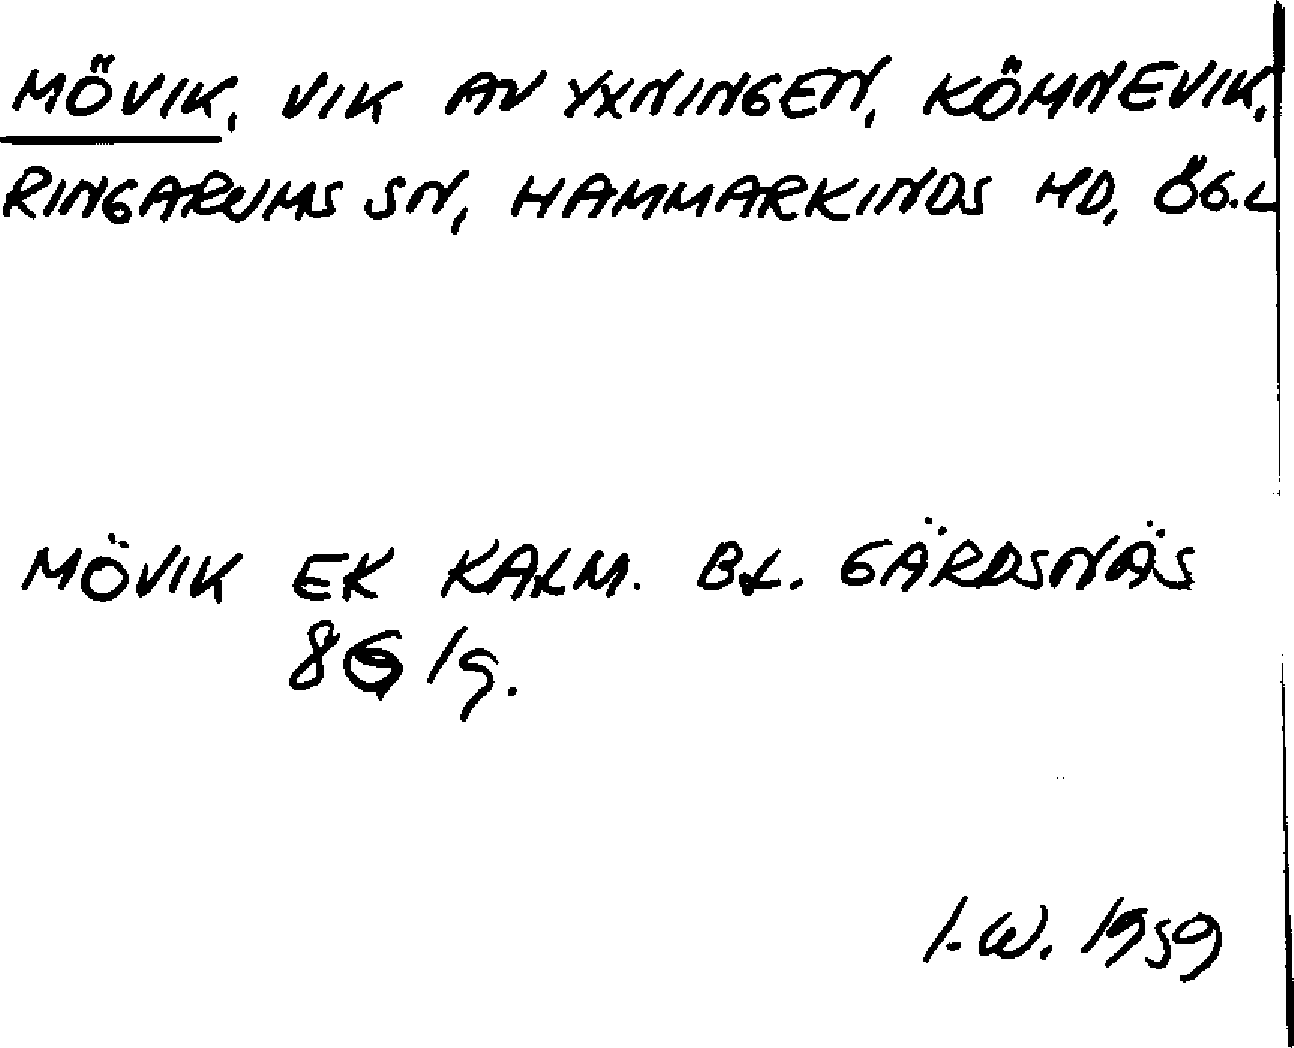 MÖVIK, VIK AV YXNINGEN, KÖMNEVIK,
RINGARUMS SN, HAMMARKINDS HD, ÖG.L
MÖVIK EK KALM. BL. GÄRDSNÄS
I.W. 1959